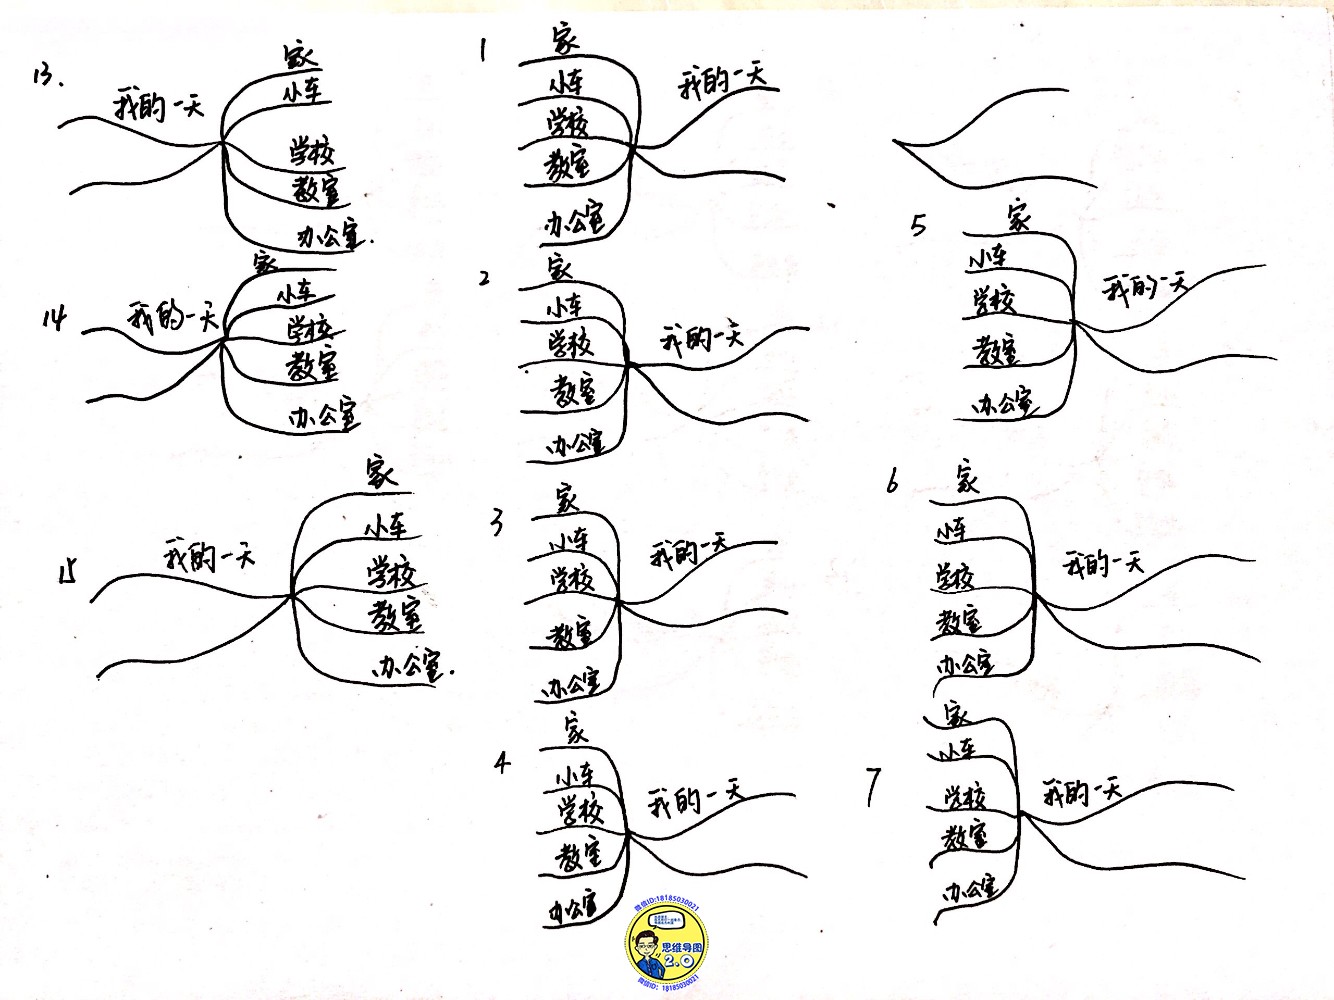 13.
我的一天
家
小车
学校
教室
办公室.
14
我的一天
家
小车
学校
教室
办公室
15
我的一天
家
小车
学校
教室
办公室.
1
家
小车
学校
教室
办公室
我的一天
2
家
小车
学校
教室
办公室
我的一天
3
家
小车
学校
教室
办公室
我的一天
4
家
小车
学校
教室
办公室
我的一天
5
家
小车
学校
教室
办公室
我的一天
6
家
小车
学校
教室
办公室
我的一天
7
家
小车
学校
教室
办公室
我的一天
微信ID:18185030021
思维导图
2.0
微信ID: 18185030021